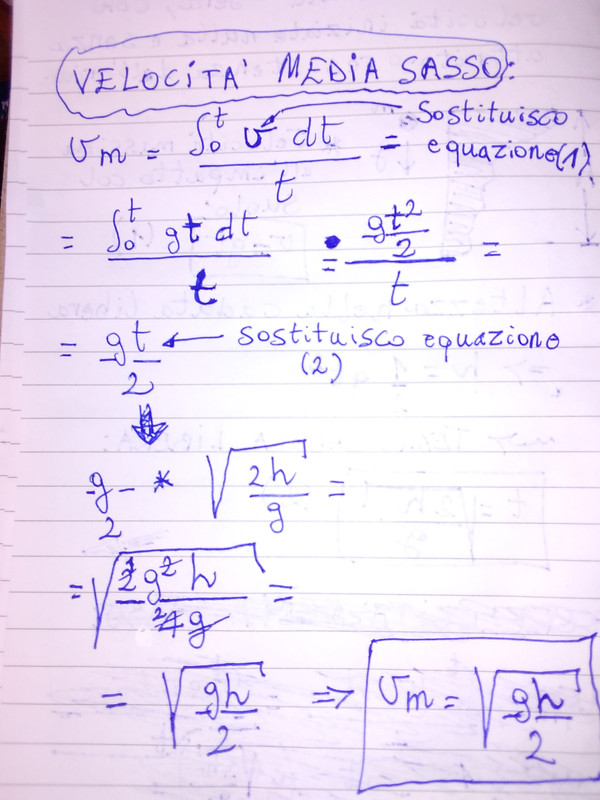 VELOCITA' MEDIA SASSO:
Vm = ∫₀ᵗ v dt / t = Sostituisco equazione(1)
= ∫₀ᵗ gt dt / t = gt²/2 / t =
= gt/2 ← sostituisco equazione (2)
⇓
g/2 * √(2h/g) =
= √(2g²h/4g) =
= √(gh/2) ⇒ Vm = √(gh/2)